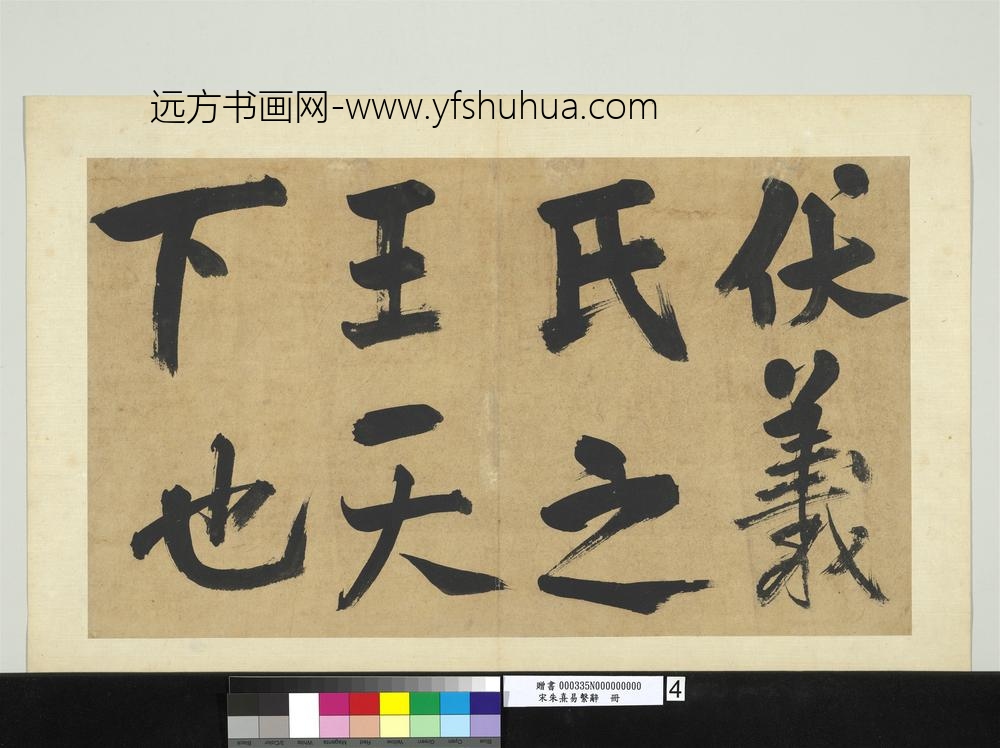 远方书画网-www.yfshuhua.com
伏羲
氏之
王天
下也
贈書 000335N000000000
宋朱熹易繫辭 冊
4
Blue
Cyan
Green
Yellow
Red
Magenta
White
3/Color
Black